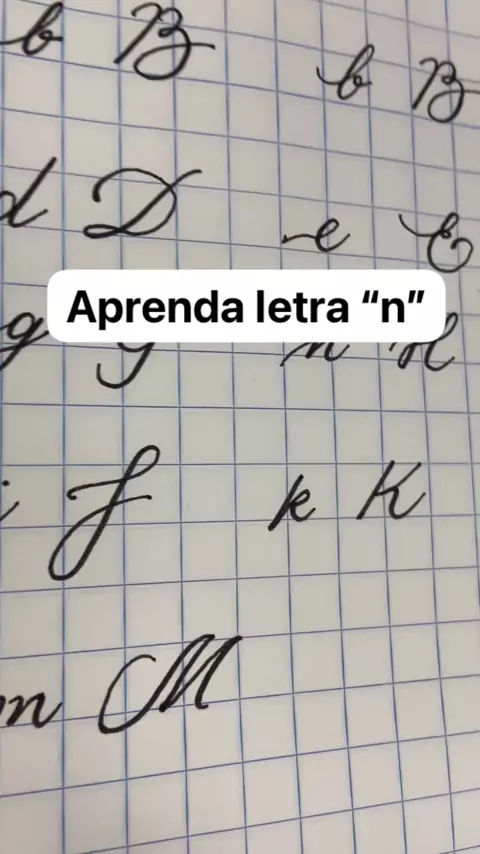 b B b B
d D e E
Aprenda letra “n”
g
J k K
m M